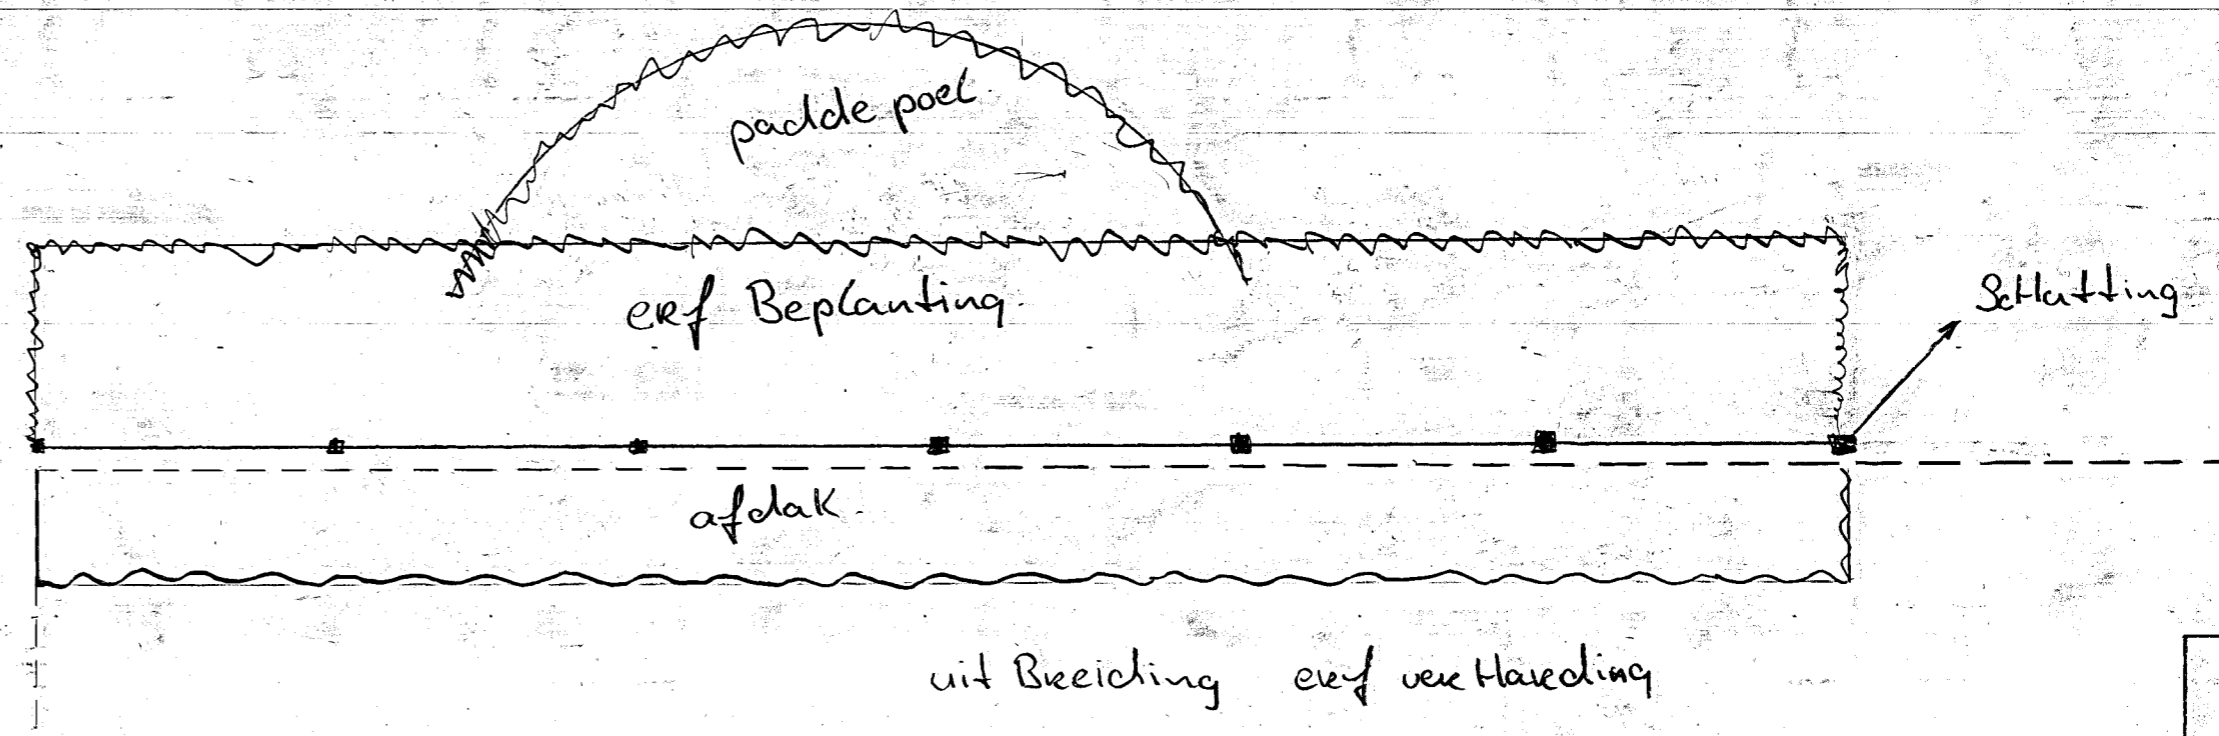 padde poel.
erf Beplanting.
Schutting
afdak.
uit Breiding erf ver Harding